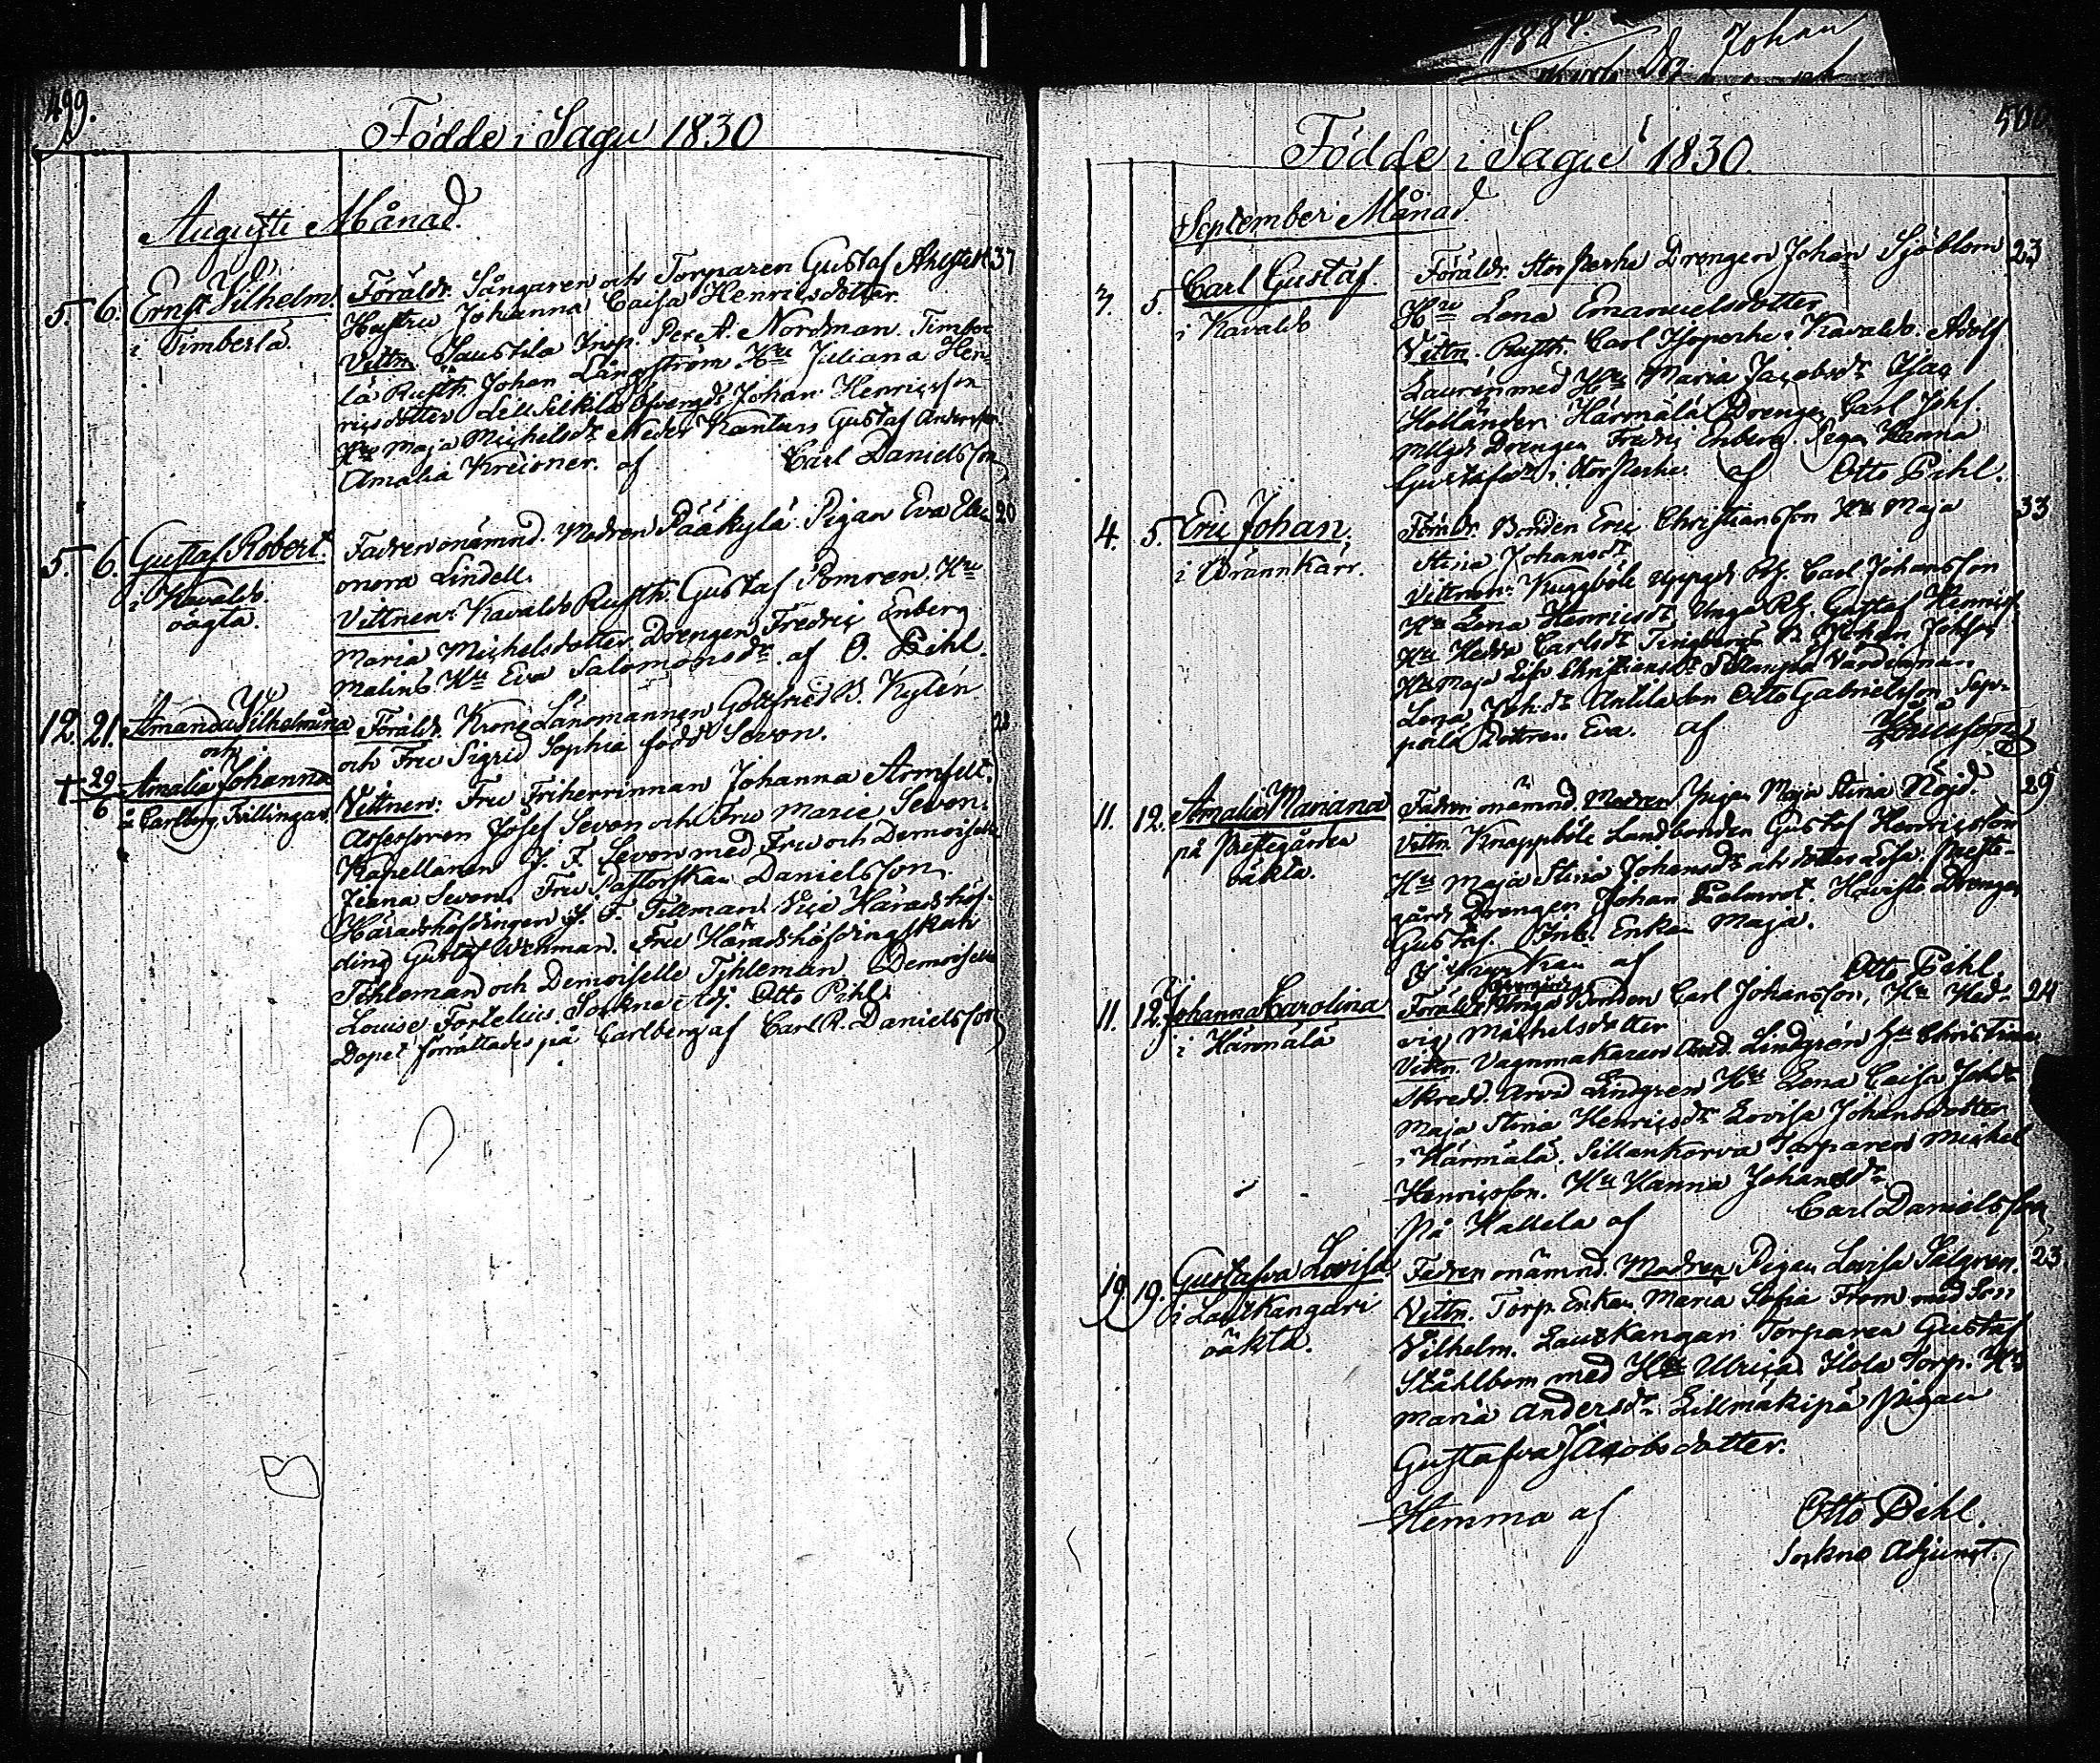 1884.
Johan
499.
Födde i Sagu 1830
Augusti Månad.
5. 6. Ernst Vilhelm.
i Timberla.
Föräldr. Sångaren och Torparen Gustaf 37
Hustru Johanna Caisa Henricsdotter.
Vittn. Knap. Per A. Nordman. Timber
la Rusth. Johan Långström. Hu Juliana Hen-
ricsdotter Johan Henricsson
Hu Maja Michelsdr Neder Gustaf Anderss.
Amalia af Carl Danielsson
5. 6. Gustaf Robert.
i Kavaldo.
oägta.
Fadren onämnd. Modren Pääkylä Pigan Eva Ele 20
onora Lindell.
Vittnen: Kavaldo Rusth. Gustaf Hu
Maria Michelsdotter. Drengen Fredric Enberg
Malins Hu Eva Salomonsdr. af O. Pihl.
12. 21. Amanda Vilhelmina
och
† 29/6 Amalia Johanna
å Carlberg. Tvillingar.
Föräldr. Krono Länsmannen Gottfried B. Kylén
och Fru Sigrid Sophia född Sevon.
Vittnen: Fru Friherrinnan Johanna Armfelt.
Assessoren Josef Sevon och Fru Marie Sevon.
Kapellanen J. F. Sevon med Fru och Demoiselle
Jeana Sevon. Fru Pastorskan Danielsson.
Häradshöfdingen J. F. Tillman. Vice Häradshöf-
ding Gustaf Wikman. Fru Häradshöfdingskan
Tihleman och Demoiselle Tihleman Demoiselle
Louise Fortelius. Sockne Adj. Otto Pihl.
Dopet förrättades på Carlberg af Carl R. Danielsson
500.
Födde i Sagu 1830.
September Månad
3. 5. Carl Gustaf.
i Kavaldo
Föräldr. Storperhe Drengen Johan Sjöblom 23
Hu Lena Emanuelsdotter
Vittn. Rusth. Carl i Kavaldo. Adolf
Laurén med Hu Maria Jacobsdr Isac
Holländer. Härmälä Drengen Carl Johs.
Mllgds Drengen Fredric Enberg. Pigan Hanna
Gustafsdr i Storperhe. af Otto Pihl.
4. 5. Eric Johan.
i Brännkärr.
Föräldr. Bonden Eric Christiansson Hu Maja 33
Stina Johansdr
Vittnen: Kuggböle Uppgds Carl Johansson
Hu Lena Henricsdr Unga Gustaf Henricss.
Hu Hedda Carlsdr Johan Johss.
Hu Maja Lisa Christiansdr Värdinnan
Lena Johsdr Otto Gabrielsson Sep-
pälä Dottren Eva. af
11. 12. Amalia Mariana
på Prestegården
oäkta.
Fadren onämnd. Modren Pigan Maja Stina Nöjd. 29
Vittn. Knappböle Landbonden Gustaf Henricsson
Hu Maja Stina Johansdr och dotter Lisa. Preste-
gårds Drengen Johan Palmrot. Havisto Drengen
Gustaf. Enkan Maja.
I Kyrkan af Otto Pihl.
11. 12. Johanna Carolina
i Härmälä
Föräldr. Unga Bonden Carl Johansson, Hu Hed- 24
vig Michelsdotter
Vittn. Vagnmakaren And. Lindgrén Hu Christina.
Skredd. Arvid Lindgren Hu Lena Caisa Johdr
Maja Stina Henricsdr Lovisa Johansdotter
i Härmälä. Sillankorva Torparen Michel
Henricsson. Hu Hanna Johansdr
På Hallela af Carl Danielsson
19. 19. Gustafva Lovisa
i Laukkangari
oäkta.
Fadren onämnd. Modren Pigan Lovisa Salgren. 23
Vittn. Torp. Enkan Maria Sofia From med Son
Vilhelm. Laukkangari Torparen Gustaf
Ståhlbom med Hu Ulrica. Torp. Hu
Maria Andersdr. Lillmäkipä Pigan
Gustafva Jacobsdotter.
Hemma af Otto Pihl.
Sockne Adjunct.